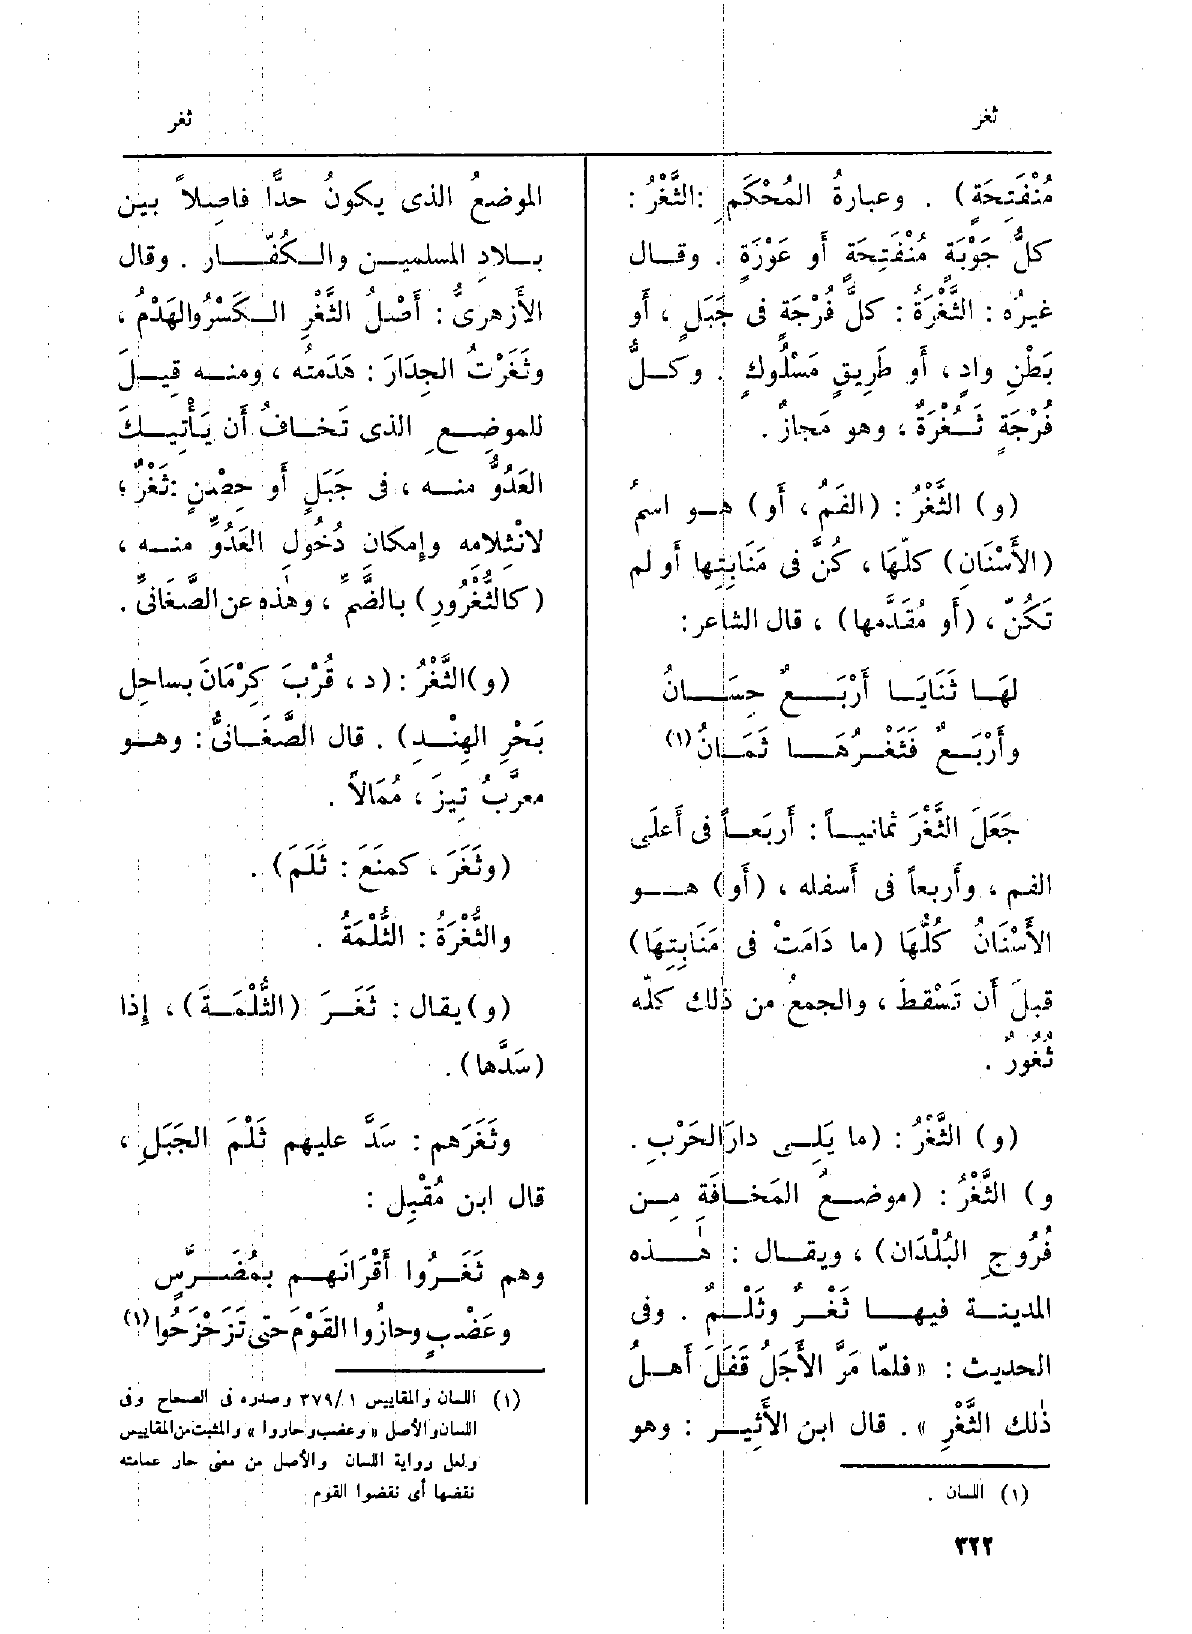 ثغر
ثغر
مُنْفَتِحَةٍ) . وعبارةُ المُحْكَمِ : الثَّغْرُ :
كلُّ جَوْبَةٍ مُنْفَتِحَةٍ أو عَوْرَةٍ . وقال
غيرُه : الثَّغْرَةُ : كلُّ فُرْجَةٍ فى جَبَلٍ ، أو
بَطْنِ وادٍ ، أو طَرِيقٍ مَسْلُوكٍ . وكلُّ
فُرْجَةٍ ثُغْرَةٌ ، وهو مَجازٌ .
(و) الثَّغْرُ : (الفَمُ ، أو) هو اسمُ
(الأَسْنَانِ) كلِّهَا ، كُنَّ فى مَنَابِتِها أو لم
تَكُنّ ، (أو مُقَدَّمها) ، قال الشاعر :
لهَا ثَنَايَا أَرْبَعٌ حِسَانُ
وأَرْبَعٌ فَثَغْرُهَا ثَمَانُ (١)
جَعَلَ الثَّغْرَ ثمانياً : أَربَعاً فى أَعلَى
الفم ، وأَربعاً فى أَسفله ، (أو) هو
الأَسْنَانُ كُلُّهَا (ما دَامَتْ فى مَنَابِتِهَا)
قبلَ أن تَسْقطَ ، والجمعُ من ذلك كلّه
ثُغُورٌ .
(و) الثَّغْرُ : (ما يَلِى دارَ الحَرْبِ .
و) الثَّغْرُ : (موضعُ المَخافَةِ مِن
فُرُوجِ البُلْدَان) ، ويقال : هٰذه
المدينة فيها ثَغْرٌ وثَلْمٌ . وفى
الحديث : « فلمّا مَرَّ الأَجَلُ قَفَلَ أهلُ
ذٰلك الثَّغْرِ » . قال ابن الأَثِير : وهو
(١) اللسان .
الموضعُ الذى يكونُ حدًّا فاصِلاً بين
بلادِ المسلمين والكُفّار . وقال
الأَزهرىُّ : أَصْلُ الثَّغْرِ الكَسْرُ والهَدْمُ ،
وثَغَرْتُ الجِدَارَ : هَدَمتُه ، ومنه قِيلَ
للموضِعِ الذى تَخافُ أن يَأْتِيكَ
العَدُوُّ منه ، فى جَبَلٍ أو حِصْنٍ : ثَغْرٌ ؛
لانْثِلامِه وإمكانِ دُخُولِ العَدُوِّ منه ،
(كالثُّغْرُورِ) بالضّمِّ ، وهٰذه عن الصَّغانىِّ .
(و) الثَّغْرُ : (د ، قُرْبَ كِرْمَانَ بساحِلِ
بَحْرِ الهِنْدِ) . قال الصَّغَانىُّ : وهو
معرَّبُ تِيزَ ، مُمَالاً .
(وثَغَرَ ، كمنَعَ : ثَلَمَ) .
والثُّغْرَةُ : الثُّلْمَةُ .
(و) يقال : ثَغَرَ (الثُّلْمَةَ) ، إذا
(سَدَّها) .
وثَغَرَهم : سَدَّ عليهم ثَلْمَ الجَبَلِ ،
قال ابن مُقْبِل :
وهم ثَغَرُوا أَقْرَانَهم بمُضَرَّسٍ
وعَضْبٍ وحازُوا القَوْمَ حتى تَزَحْزَحُوا (١)
(١) اللسان والمقاييس ٣٧٩/١ وصدره فى الصحاح وفى
اللسان والأصل « وعضب وحاروا » والمثبت من المقاييس
ولعل رواية اللسان والأصل من معنى حار عمامته
نقضها أى نقضوا القوم
٣٢٢